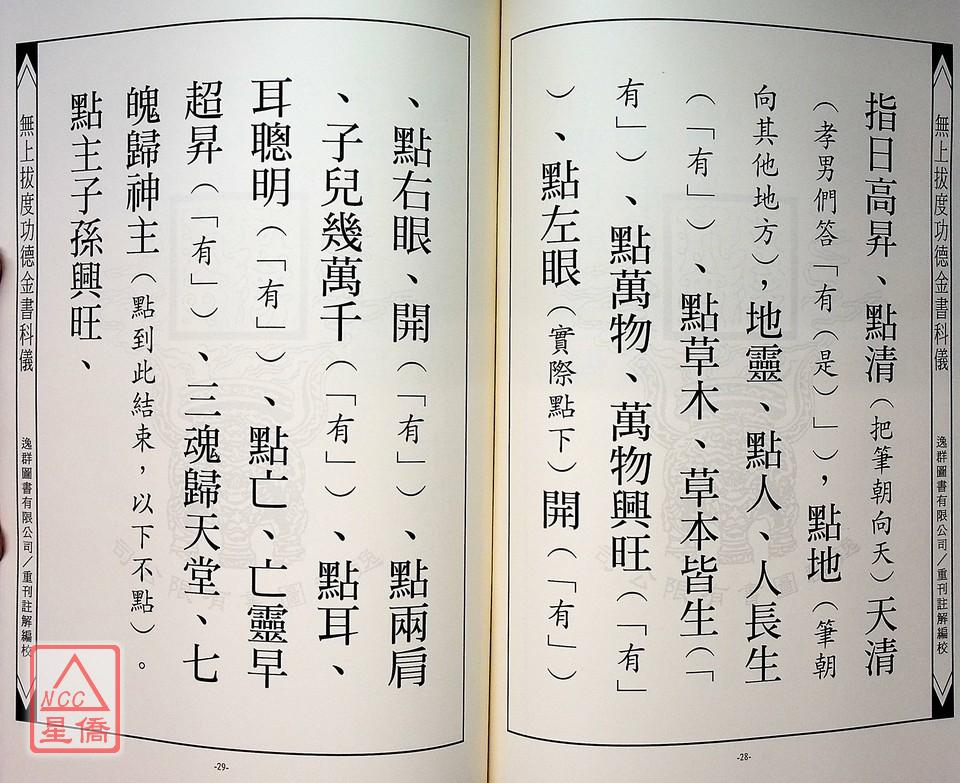 無上拔度功德金書科儀
逸群圖書有限公司/重刊註解編校
指日高昇、點清（把筆朝向天）天清
（孝男們答「有（是）」），點地（筆朝
向其他地方），地靈、點人、人長生
（「有」）、點草木、草本皆生（「
有」）、點萬物、萬物興旺（「有」
）、點左眼（實際點下）開（「有」）
-28-
、點右眼、開（「有」）、點兩肩
、子兒幾萬千（「有」）、點耳、
耳聰明（「有」）、點亡、亡靈早
超昇（「有」）、三魂歸天堂、七
魄歸神主（點到此結束，以下不點）。
點主子孫興旺、
無上拔度功德金書科儀
逸群圖書有限公司/重刊註解編校
-29-
NCC
星僑